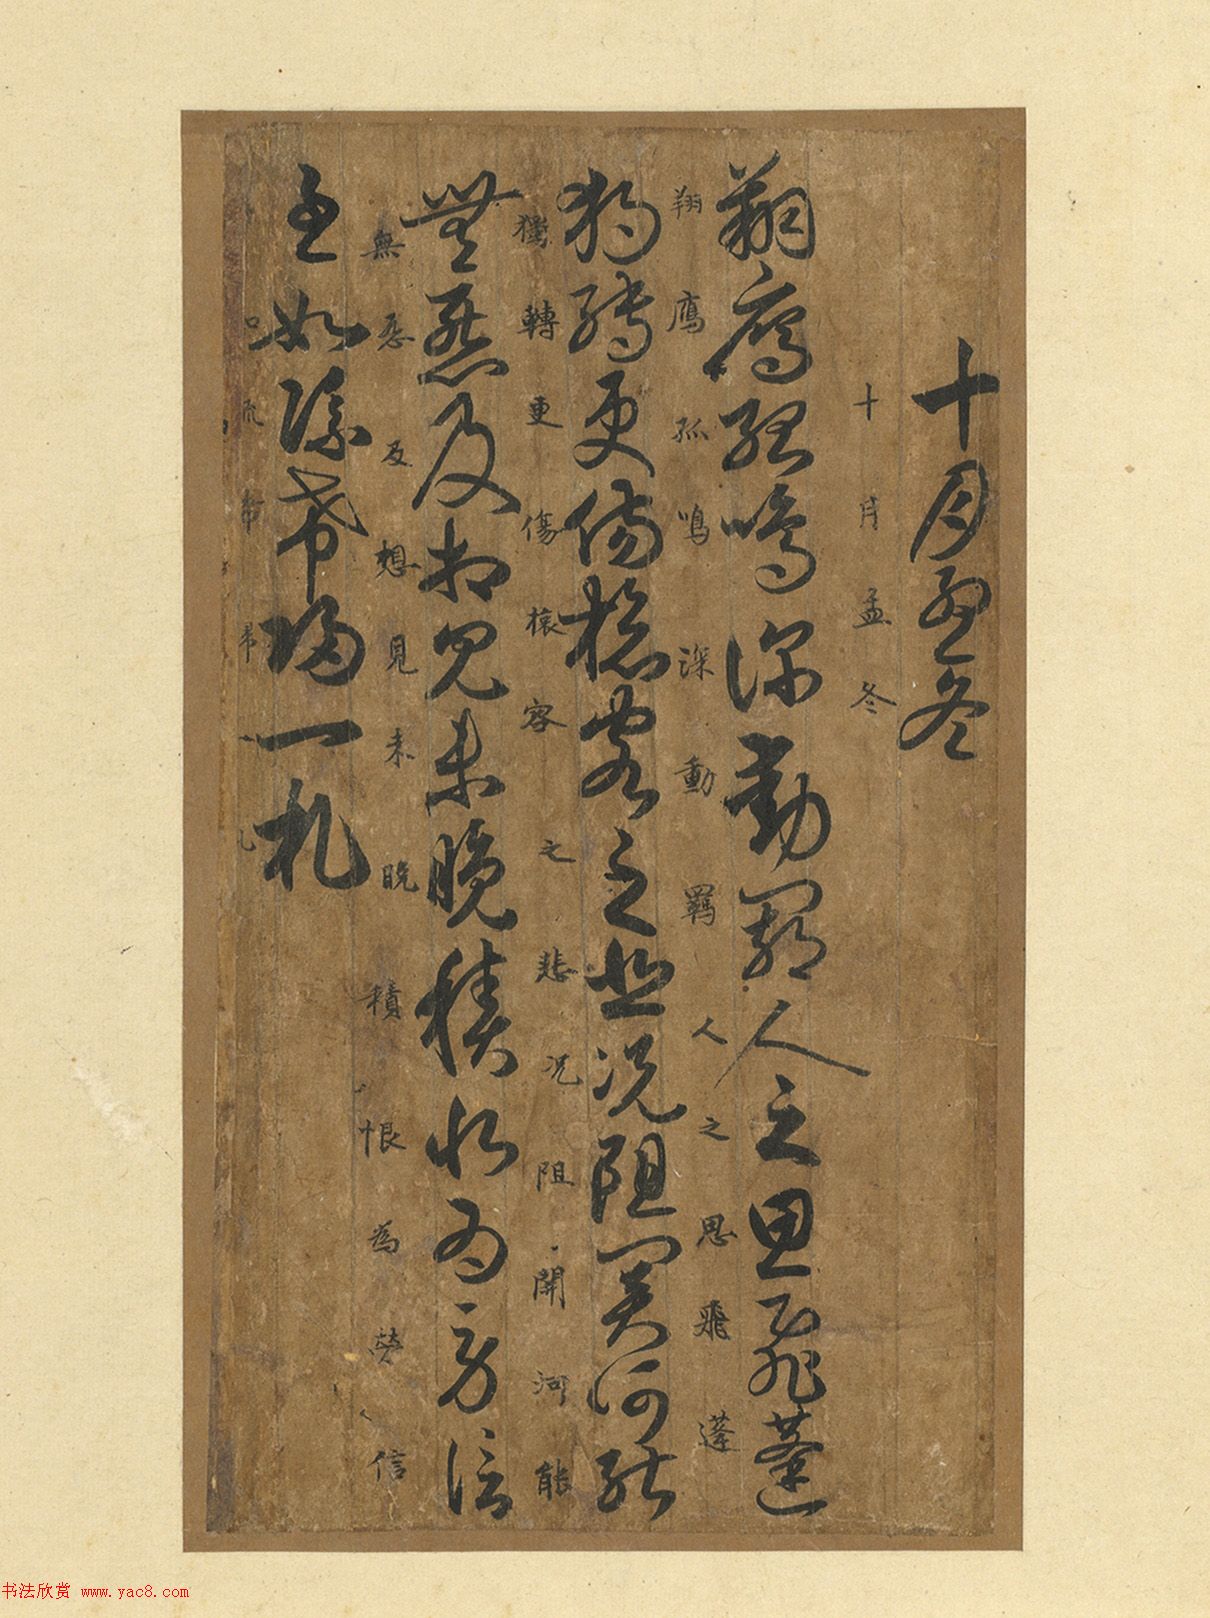 十月孟冬
十月孟冬
翔鷹孤鳴深動羇人之思飛蓬
翔鷹孤鳴深動羇人之思飛蓬
獨轉更傷懷客之悲况阻關河能
獨轉更傷懷容之悲况阻開河能
無恶及想見未晚積恨為勞信
無恶及想見未晚積恨為勞信
至如流希歸一札
流希帰一札
书法欣赏 www.yac8.com